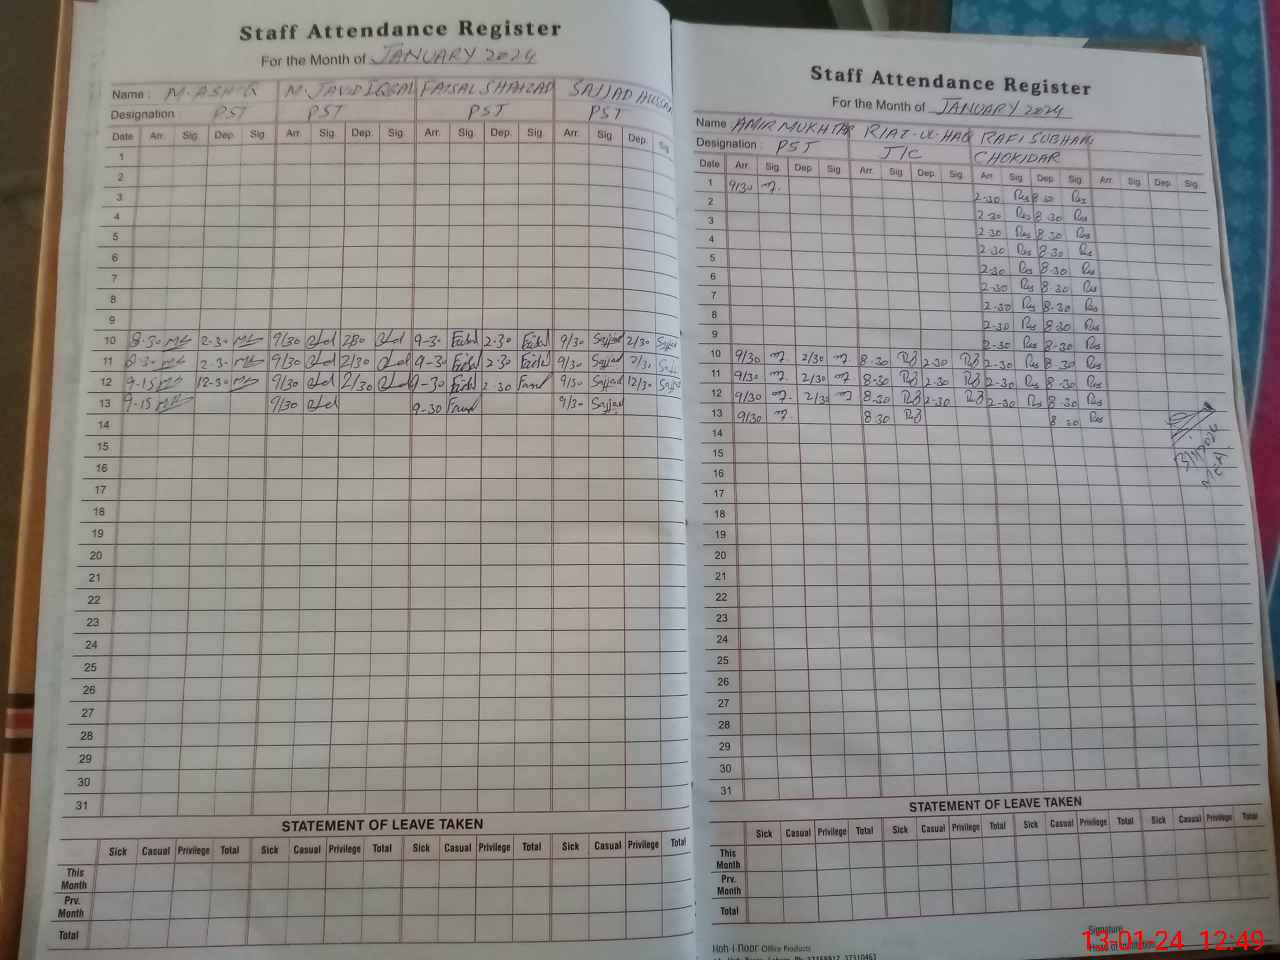 Staff Attendance Register
For the Month of JANUARY 2024
Name : M. ASHIQ M. JAVID IQBAL FAISAL SHAHZAD SAJJAD HUSSAIN
Designation PST PST PST PST
Date Arr. Sig. Dep. Sig. Arr. Sig. Dep. Sig. Arr. Sig. Dep. Sig. Arr. Sig. Dep. Sig
1
2
3
4
5
6
7
8
9
10 8-30 2-30 9/30 9-30 2-30 9/30 Sajjad 2/30
11 8-30 2-30 9/30 2/30 9-30 2-30 9/30 Sajjad 2/30
12 9-15 12-30 9/30 2/30 9-30 2-30 9/30 Sajjad 12/30
13 9-15 9/30 9-30 9/30 Sajjad
14
15
16
17
18
19
20
21
22
23
24
25
26
27
28
29
30
31
STATEMENT OF LEAVE TAKEN
Sick Casual Privilege Total Sick Casual Privilege Total Sick Casual Privilege Total Sick Casual Privilege Total
This Month
Prv. Month
Total
Staff Attendance Register
For the Month of JANUARY 2024
Name AMIR MUKHTAR RIAZ-UL-HAQ RAFI SUBHANI
Designation : PST J/C CHOKIDAR
Date Arr. Sig. Dep Sig. Arr. Sig. Dep. Sig. Arr Sig Dep Sig. Arr. Sig. Dep Sig.
1 9/30 2-30 8 30
2 2-30 8-30
3 2-30 8-30
4 2-30 8-30
5 2-30 8-30
6 2-30 8-30
7 2-30 8-30
8 2-30 8-30
9 2-30 8-30
10 9/30 2/30 8-30 2-30 2-30 8-30
11 9/30 2/30 8-30 2-30 2-30 8-30
12 9/30 2/30 8-30 2-30 2-30 8-30
13 9/30 8 30 8 30
14
15
16
17
18
19
20
21
22
23
24
25
26
27
28
29
30
31
STATEMENT OF LEAVE TAKEN
Sick Casual Privilege Total Sick Casual Privilege Total Sick Casual Privilege Total Sick Casual Privilege Total
This Month
Prv. Month
Total
Koh-i-noor Office Products
Signature
13-01-24 12:49